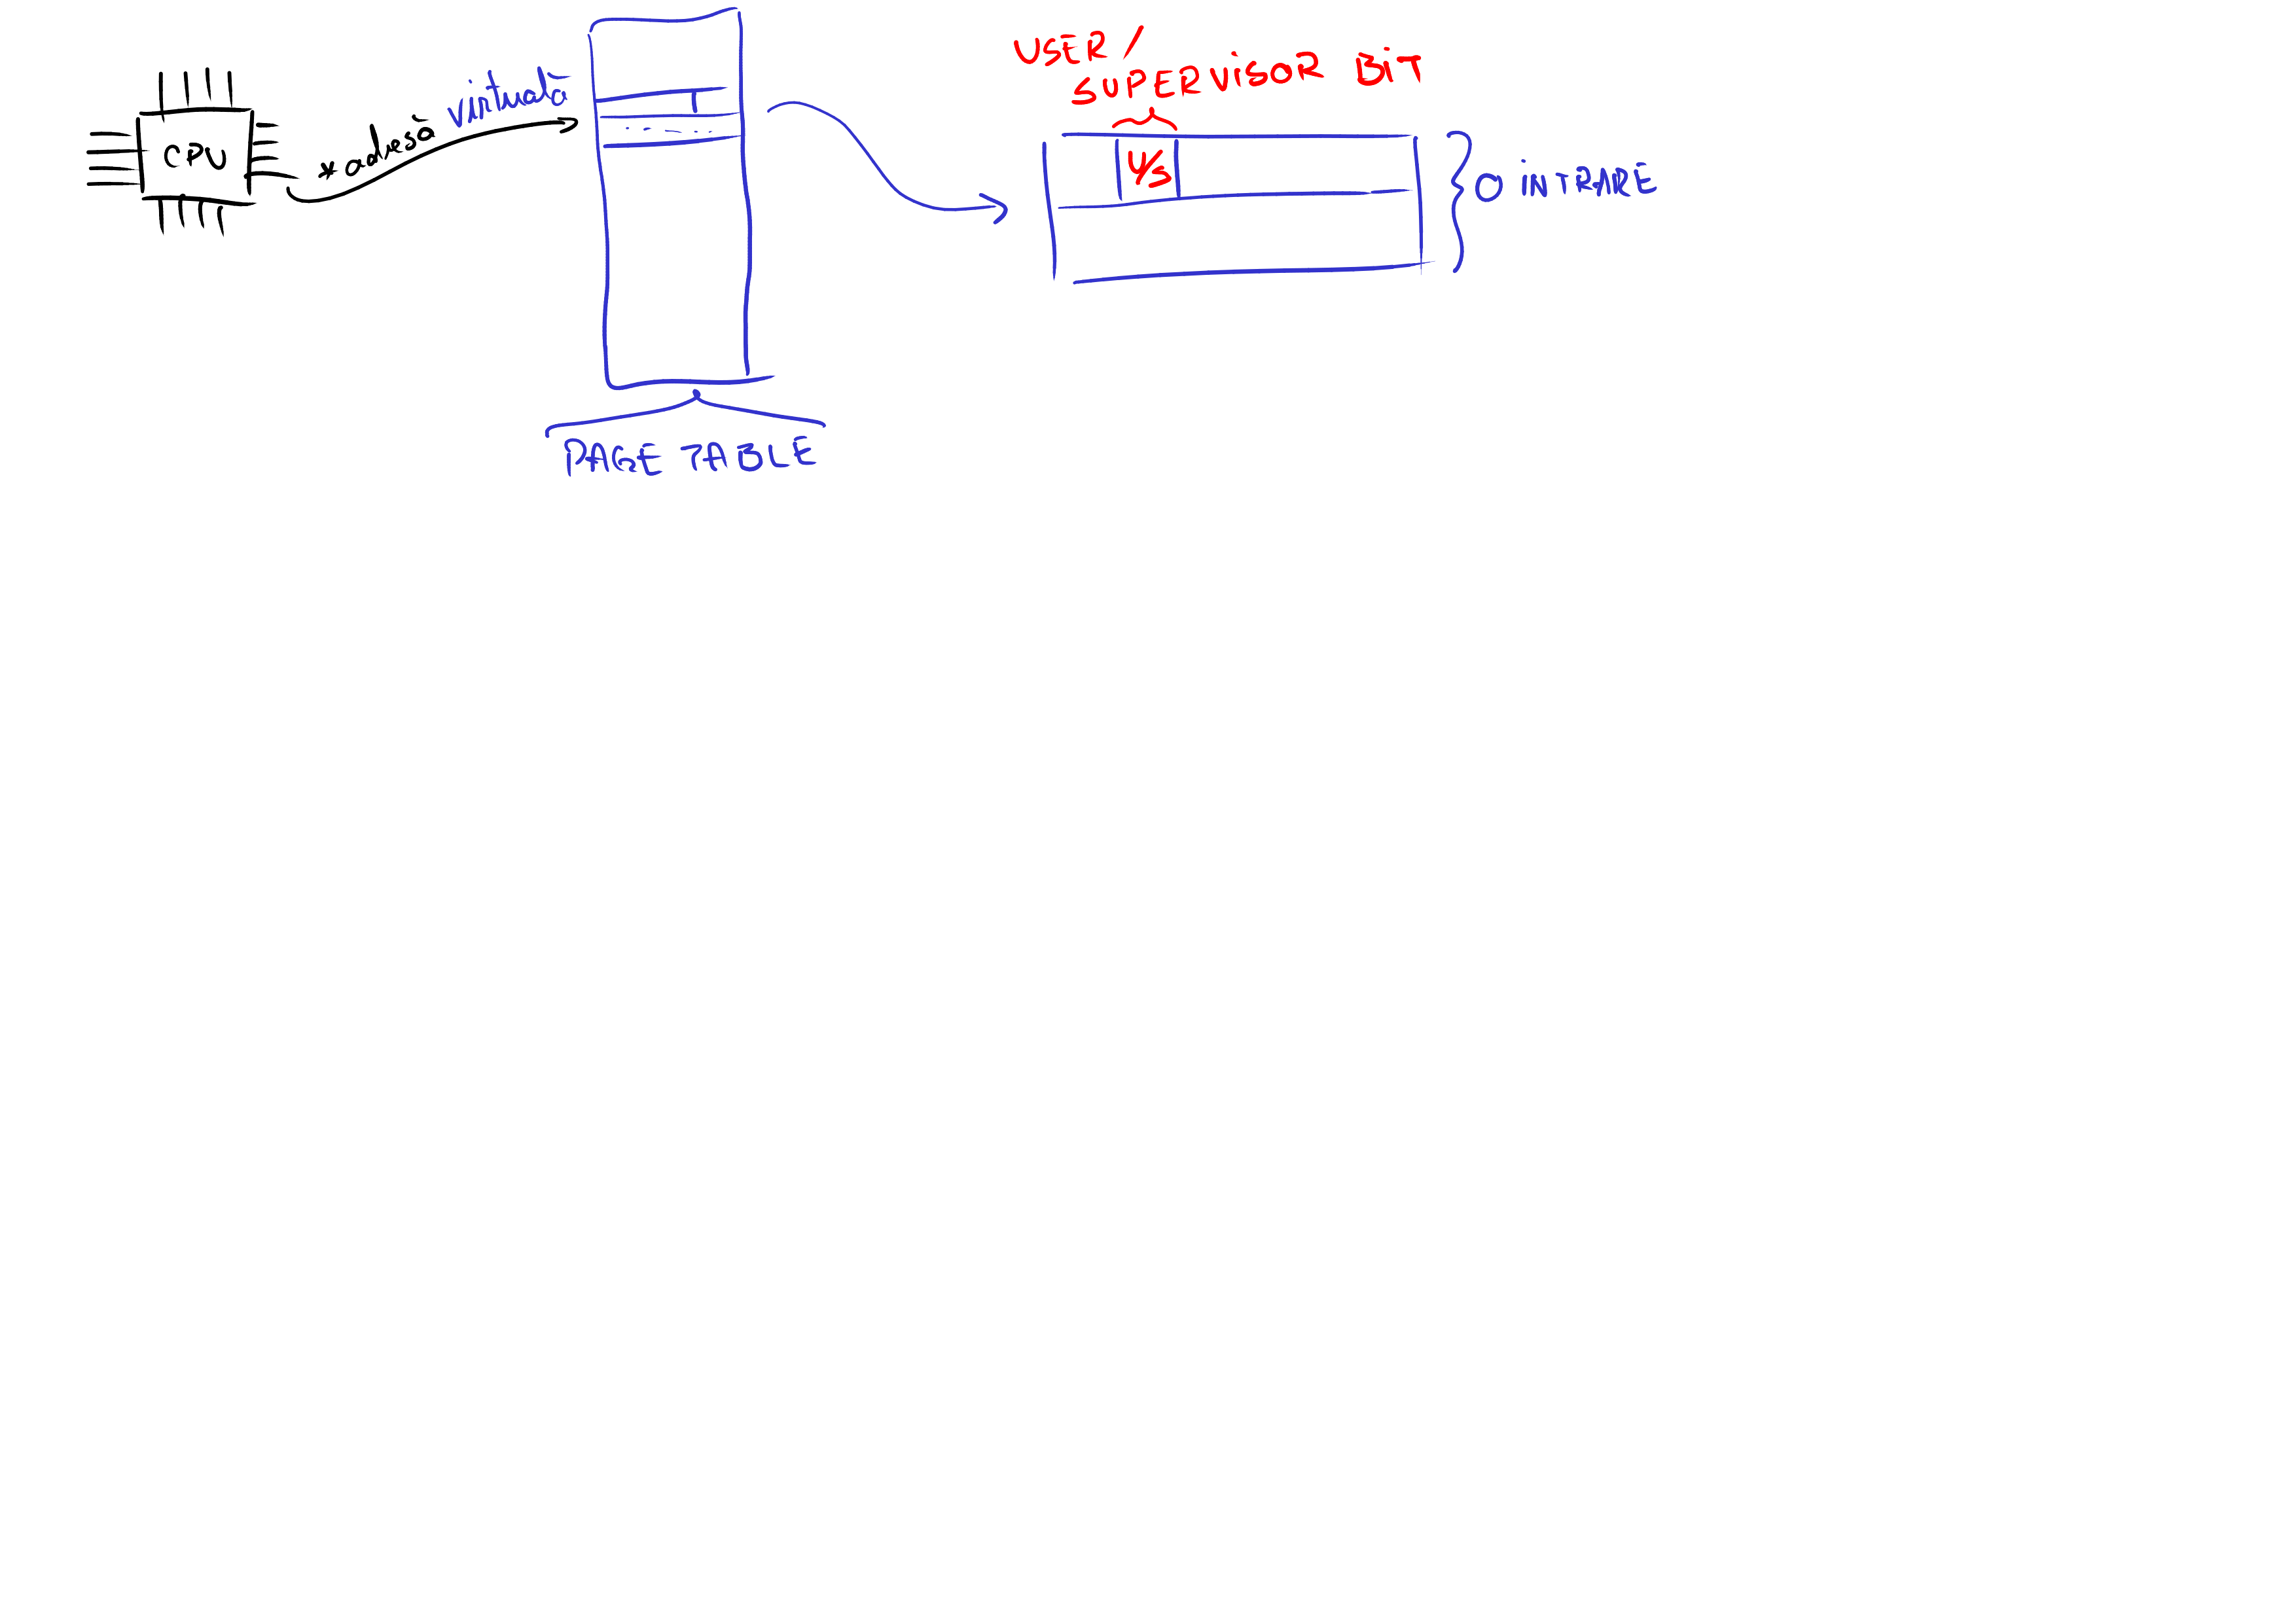 CPU
* adresă virtuală
PAGE TABLE
USER /
SUPERVISOR BIT
U/S
O INTRARE